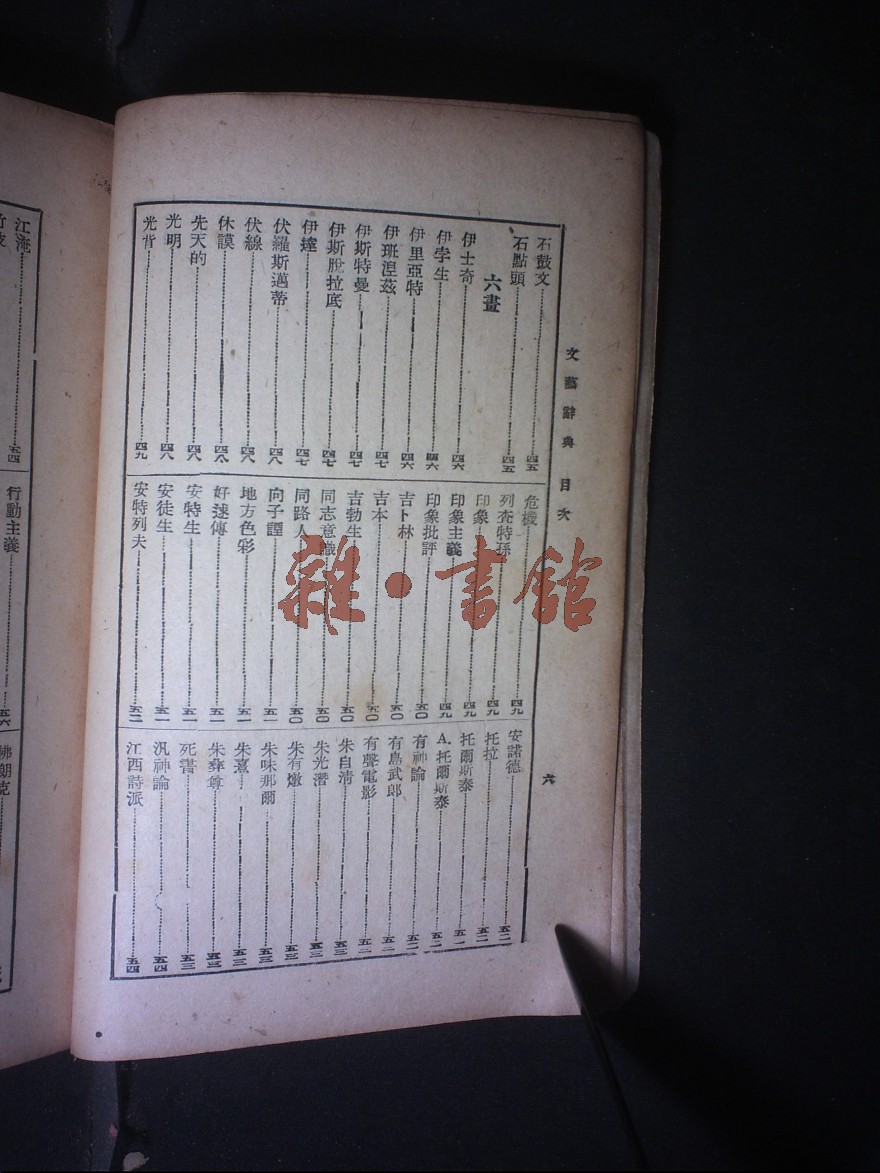 文藝辭典 目次
六
石鼓文……四五
石點頭……四五
六畫
伊士奇……四六
伊孛生……四六
伊里亞特……四六
伊班涅茲……四七
伊斯特曼……四七
伊斯脫拉底……四七
伊達……四七
伏羅斯邁蒂……四八
伏線……四八
休謨……四八
先天的……四八
光明……四八
光背……四九
危機……四九
列查特孫……四九
印象……四九
印象主義……四九
印象批評……五〇
吉卜林……五〇
吉本……五〇
吉勃生……五〇
同志意識……五〇
同路人……五〇
向子諲……五一
地方色彩……五一
好逑傳……五一
安特生……五一
安徒生……五一
安特列夫……五二
安諾德……五二
托拉……五二
托爾斯泰……五一
A.托爾斯泰……五二
有神論……五二
有島武郎……五二
有聲電影……五二
朱自清……五三
朱光潛……五三
朱有燉……五三
朱味那爾……五三
朱熹……五三
朱彝尊……五三
死書……五三
汎神論……五四
江西詩派……五四
江淹……五四
行動主義……五六
佛朗克
雜·書館